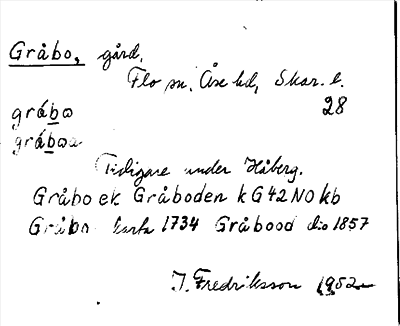 Gråbo, gård.
Flo sn, Åse hd, Skar. l.
28
gråbω
gråbωa
Tidigare under Håberg.
Gråbo ek Gråboden k G42NO kb
Gråbo karta 1734 Gråbood dio 1857
J. Fredriksson 1952